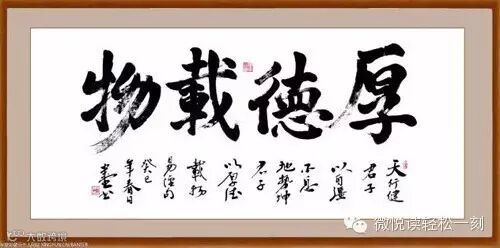 厚德載物
天行健
君子
以自强
不息
地势坤
君子
以厚德
載物
易經句
癸巳
年春日
微悦读轻松一刻
大数跨境